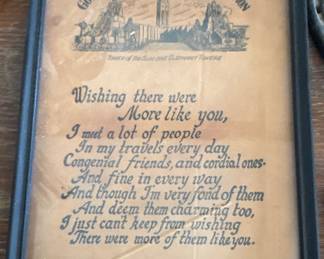 Tower of the Sun and Elephant Towers
Wishing there were
More like you,
I meet a lot of people
In my travels every day
Congenial friends, and cordial ones.
And fine in every way
And though I'm very fond of them
And deem them charming too,
I just can't keep from wishing
There were more of them like you.